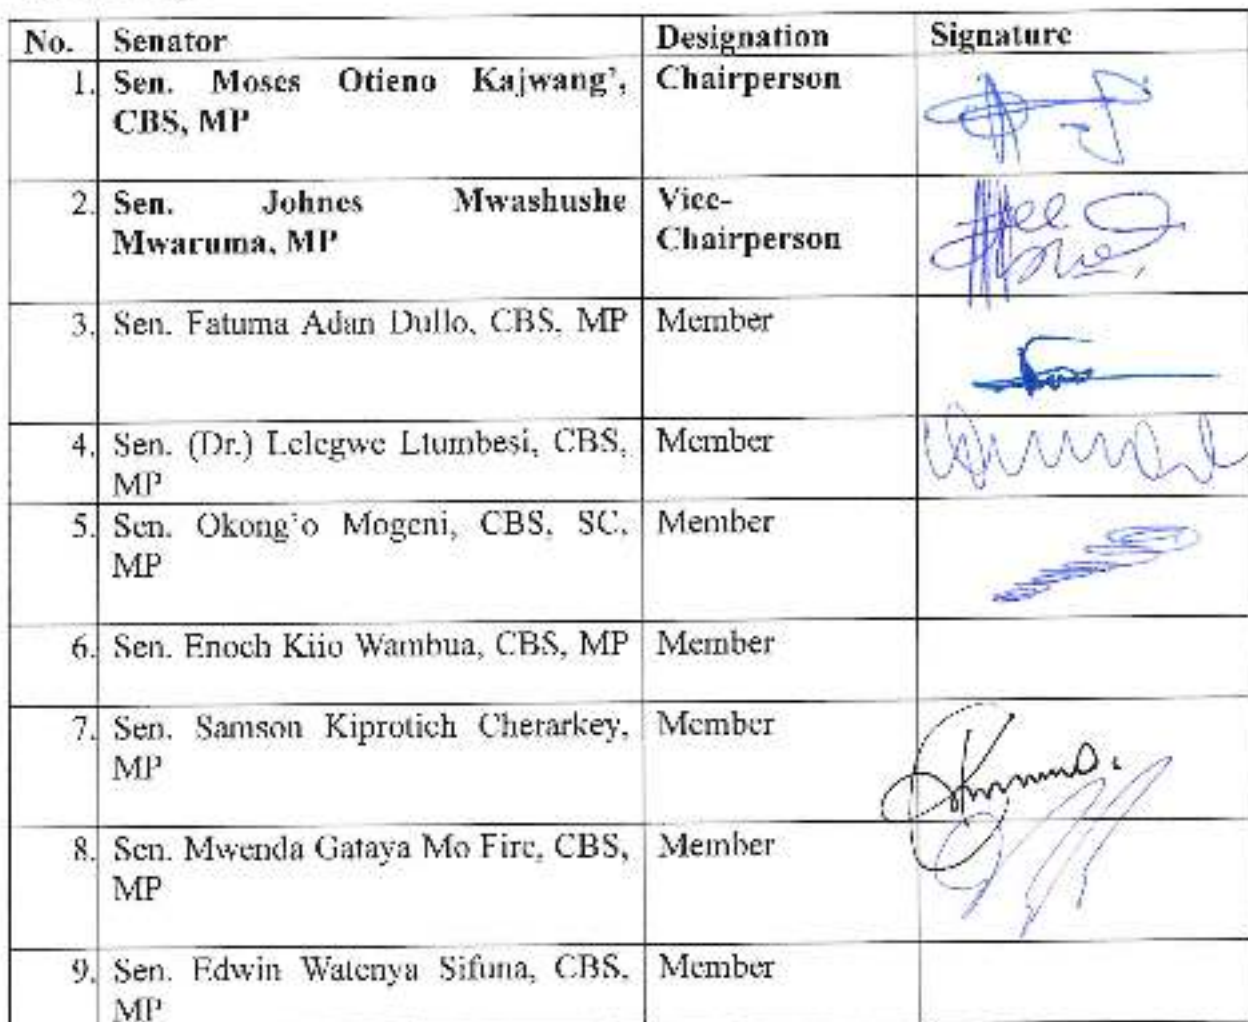 No. Senator Designation Signature
1. Sen. Moses Otieno Kajwang', Chairperson
CBS, MP
2. Sen. Johnes Mwashushe Vice-
Mwaruma, MP Chairperson
3. Sen. Fatuma Adan Dullo, CBS, MP Member
4. Sen. (Dr.) Lelegwe Ltumbesi, CBS, Member
MP
5. Sen. Okong'o Mogeni, CBS, SC, Member
MP
6. Sen. Enoch Kiio Wambua, CBS, MP Member
7. Sen. Samson Kiprotich Cherarkey, Member
MP
8. Sen. Mwenda Gataya Mo Fire, CBS, Member
MP
9. Sen. Edwin Watenya Sifuna, CBS, Member
MP